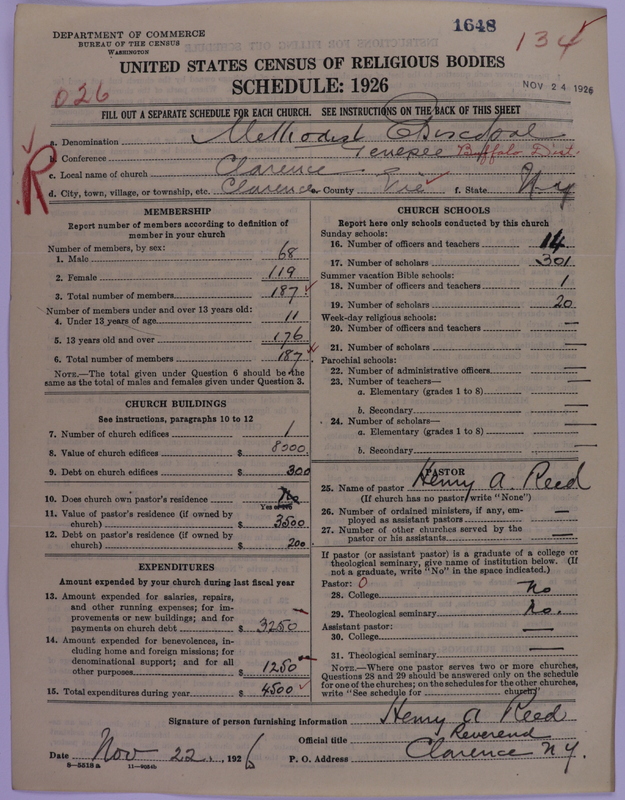 1648
134
DEPARTMENT OF COMMERCE
BUREAU OF THE CENSUS
WASHINGTON
UNITED STATES CENSUS OF RELIGIOUS BODIES
SCHEDULE: 1926
NOV 24 1926
026
FILL OUT A SEPARATE SCHEDULE FOR EACH CHURCH. SEE INSTRUCTIONS ON THE BACK OF THIS SHEET
R
a. Denomination Methodist Episcopal
b. Conference Genesee Buffalo Dist.
c. Local name of church Clarence
d. City, town, village, or township, etc. Clarence e. County Erie f. State N.Y.
MEMBERSHIP
Report number of members according to definition of
member in your church
Number of members, by sex:
1. Male 68
2. Female 119
3. Total number of members 187
Number of members under and over 13 years old:
4. Under 13 years of age 11
5. 13 years old and over 176
6. Total number of members 187
NOTE.—The total given under Question 6 should be the
same as the total of males and females given under Question 3.
CHURCH BUILDINGS
See instructions, paragraphs 10 to 12
7. Number of church edifices 1
8. Value of church edifices $ 8000
9. Debt on church edifices $ 300
10. Does church own pastor's residence
Yes or No
11. Value of pastor's residence (if owned by
church) $ 3500
12. Debt on pastor's residence (if owned by
church) $ 200
EXPENDITURES
Amount expended by your church during last fiscal year
13. Amount expended for salaries, repairs,
and other running expenses; for im-
provements or new buildings; and for
payments on church debt $ 3250
14. Amount expended for benevolences, in-
cluding home and foreign missions; for
denominational support; and for all
other purposes $ 1250
15. Total expenditures during year $ 4500
CHURCH SCHOOLS
Report here only schools conducted by this church
Sunday schools:
16. Number of officers and teachers 14
17. Number of scholars 301
Summer vacation Bible schools:
18. Number of officers and teachers 1
19. Number of scholars 20
Week-day religious schools:
20. Number of officers and teachers —
21. Number of scholars —
Parochial schools:
22. Number of administrative officers —
23. Number of teachers—
a. Elementary (grades 1 to 8) —
b. Secondary —
24. Number of scholars—
a. Elementary (grades 1 to 8) —
b. Secondary —
PASTOR
25. Name of pastor Henry A. Reed
(If church has no pastor write "None")
26. Number of ordained ministers, if any, em-
ployed as assistant pastors —
27. Number of other churches served by the
pastor or his assistants —
If pastor (or assistant pastor) is a graduate of a college or
theological seminary, give name of institution below. (If
not a graduate, write "No" in the space indicated.)
Pastor: 0
28. College No
29. Theological seminary No.
Assistant pastor:
30. College —
31. Theological seminary —
NOTE.—Where one pastor serves two or more churches,
Questions 28 and 29 should be answered only on the schedule
for one of the churches; on the schedules for the other churches,
write "See schedule for church"
Signature of person furnishing information Henry A Reed
Official title Reverend
Date Nov 22, 1926 P. O. Address Clarence N.Y.
8-5518a 11-9084b